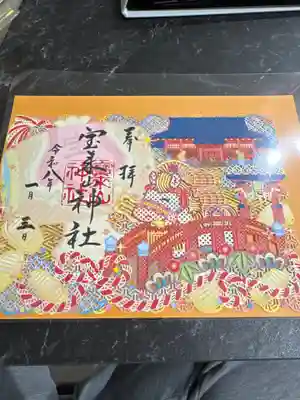 奉拝
宝来山神社
令和八年
一月三日